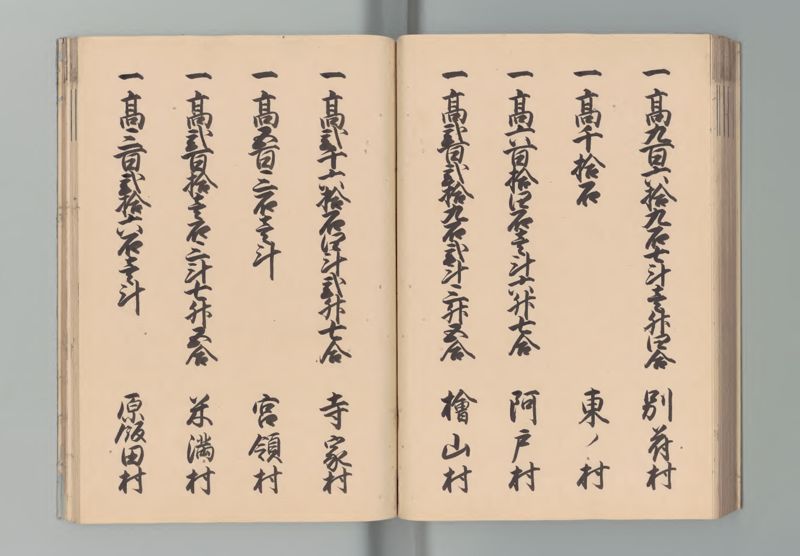 一高九百六拾九石七斗壱升四合 別府村
一高千拾石 東ノ村
一高六百拾四石壱斗六升七合 阿戸村
一高弐百弐拾九石弐斗三升五合 檜山村
一高弐千六拾石四斗弐升七合 寺家村
一高五百三石壱斗 宮領村
一高弐百拾壱石三斗七升五合 米満村
一高三百弐拾六石壱斗 原飯田村